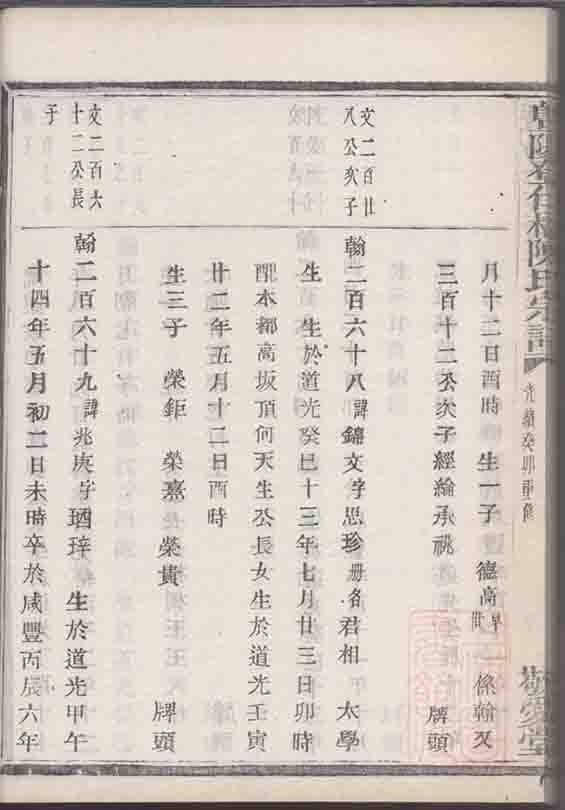 陽 石 陳氏宗譜
光緒癸卯重脩
敬愛堂
月十二日酉時 生一子 德高 早世 一係翰又
三百十二公次子經綸承祧 牌頭
文二百廿
八公次子
翰二百六十八 諱錦文 字思珍 册名君相 太學
生 生於道光癸巳十三年七月廿三日卯時
配本都高坂頂何天生公長女生於道光壬寅
廿二年五月十二日酉時
生三子 榮鉅 榮嘉 榮貴 牌頭
文二百六
十二公長
子
翰二百六十九 諱兆庚 字 生於道光甲午
十四年五月初二日未時卒於咸豐丙辰六年